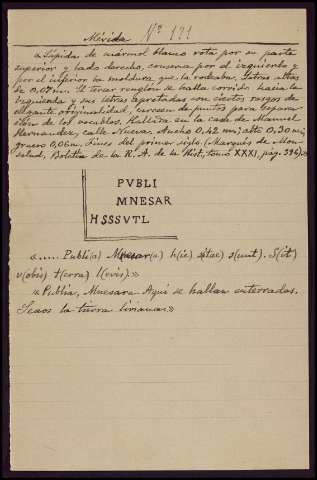 Mérida Nº 121
«Lápida de mármol blanco rota por su parte
superior y lado derecho, conserva por el izquierdo y
por el inferior la moldura que la rodeaba. Letras altas
de 0,07 m. El tercer renglón se halla corrido hacia la
izquierda y sus letras apretadas con ciertos rasgos de
elegante originalidad, carecen de puntos para separa-
ción de los vocablos. Hallóse en la casa de Manuel
Hernandez, calle Nueva. Ancho 0,42 m; alto 0,30 m;
grueso 0,06 m. Fines del primer siglo (Marqués de Mon-
salud, Boletín de la R. A. de la Hist., tomo XXXI, pág. 396).»
PVBLI
MNESAR
HSSSVTL
«..... Publi(a) Mnesar(a) h(ic) s(itae) s(unt). S(it)
v(obis) t(erra) l(evis).»
«Publia, Mnesara. Aquí se hallan enterradas.
Seaos la tierra liviana.»